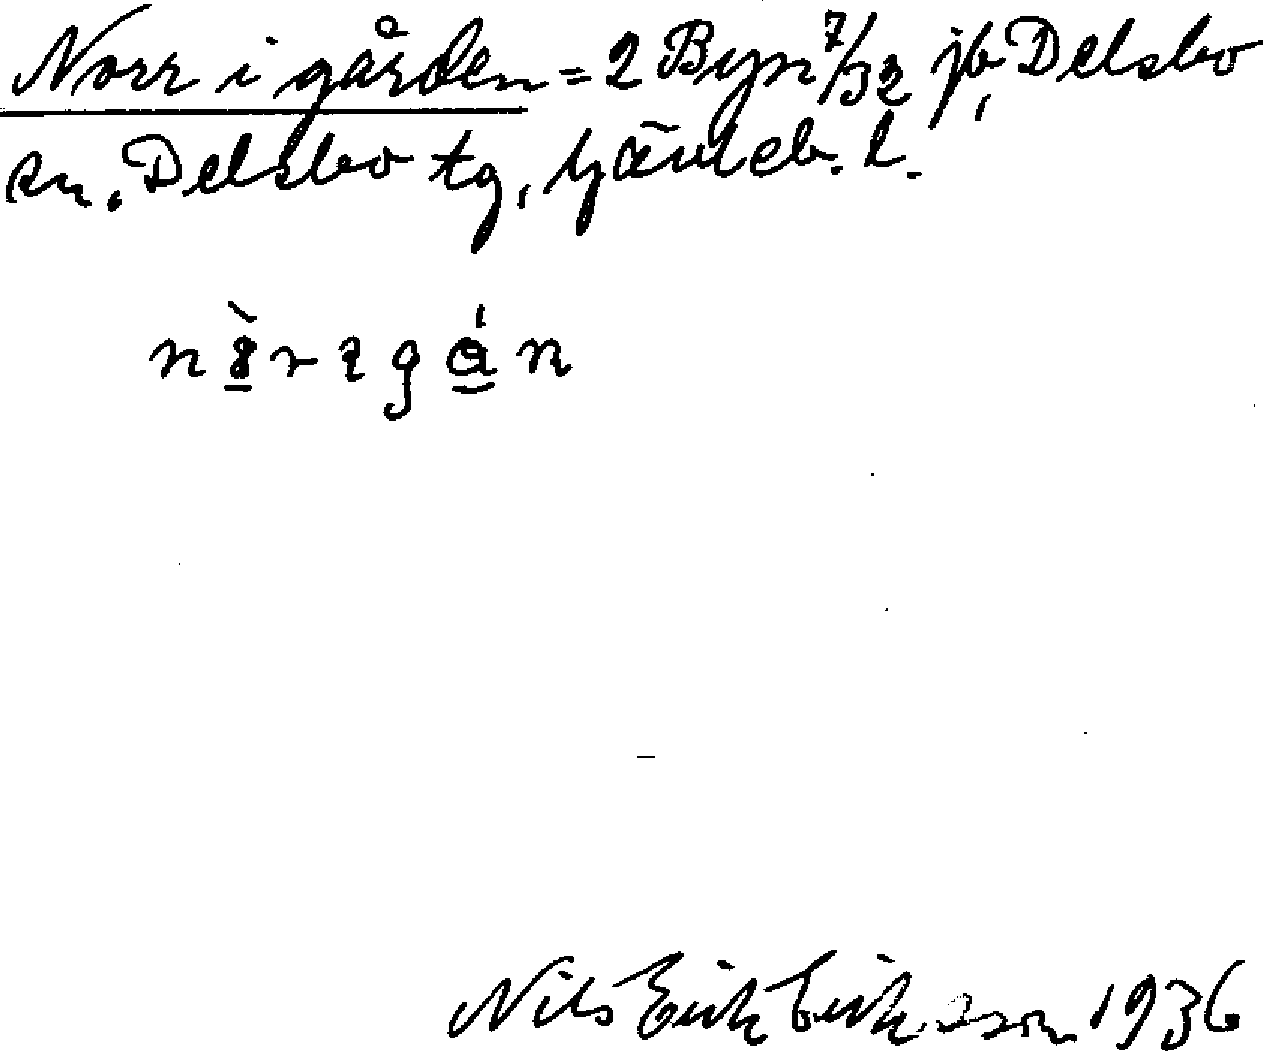 Norr i gården = 2 Byn 7/32 jb, Delsbo
sn. Delsbo tg, Gävleb. l.
Nils Erik Eriksson 1936